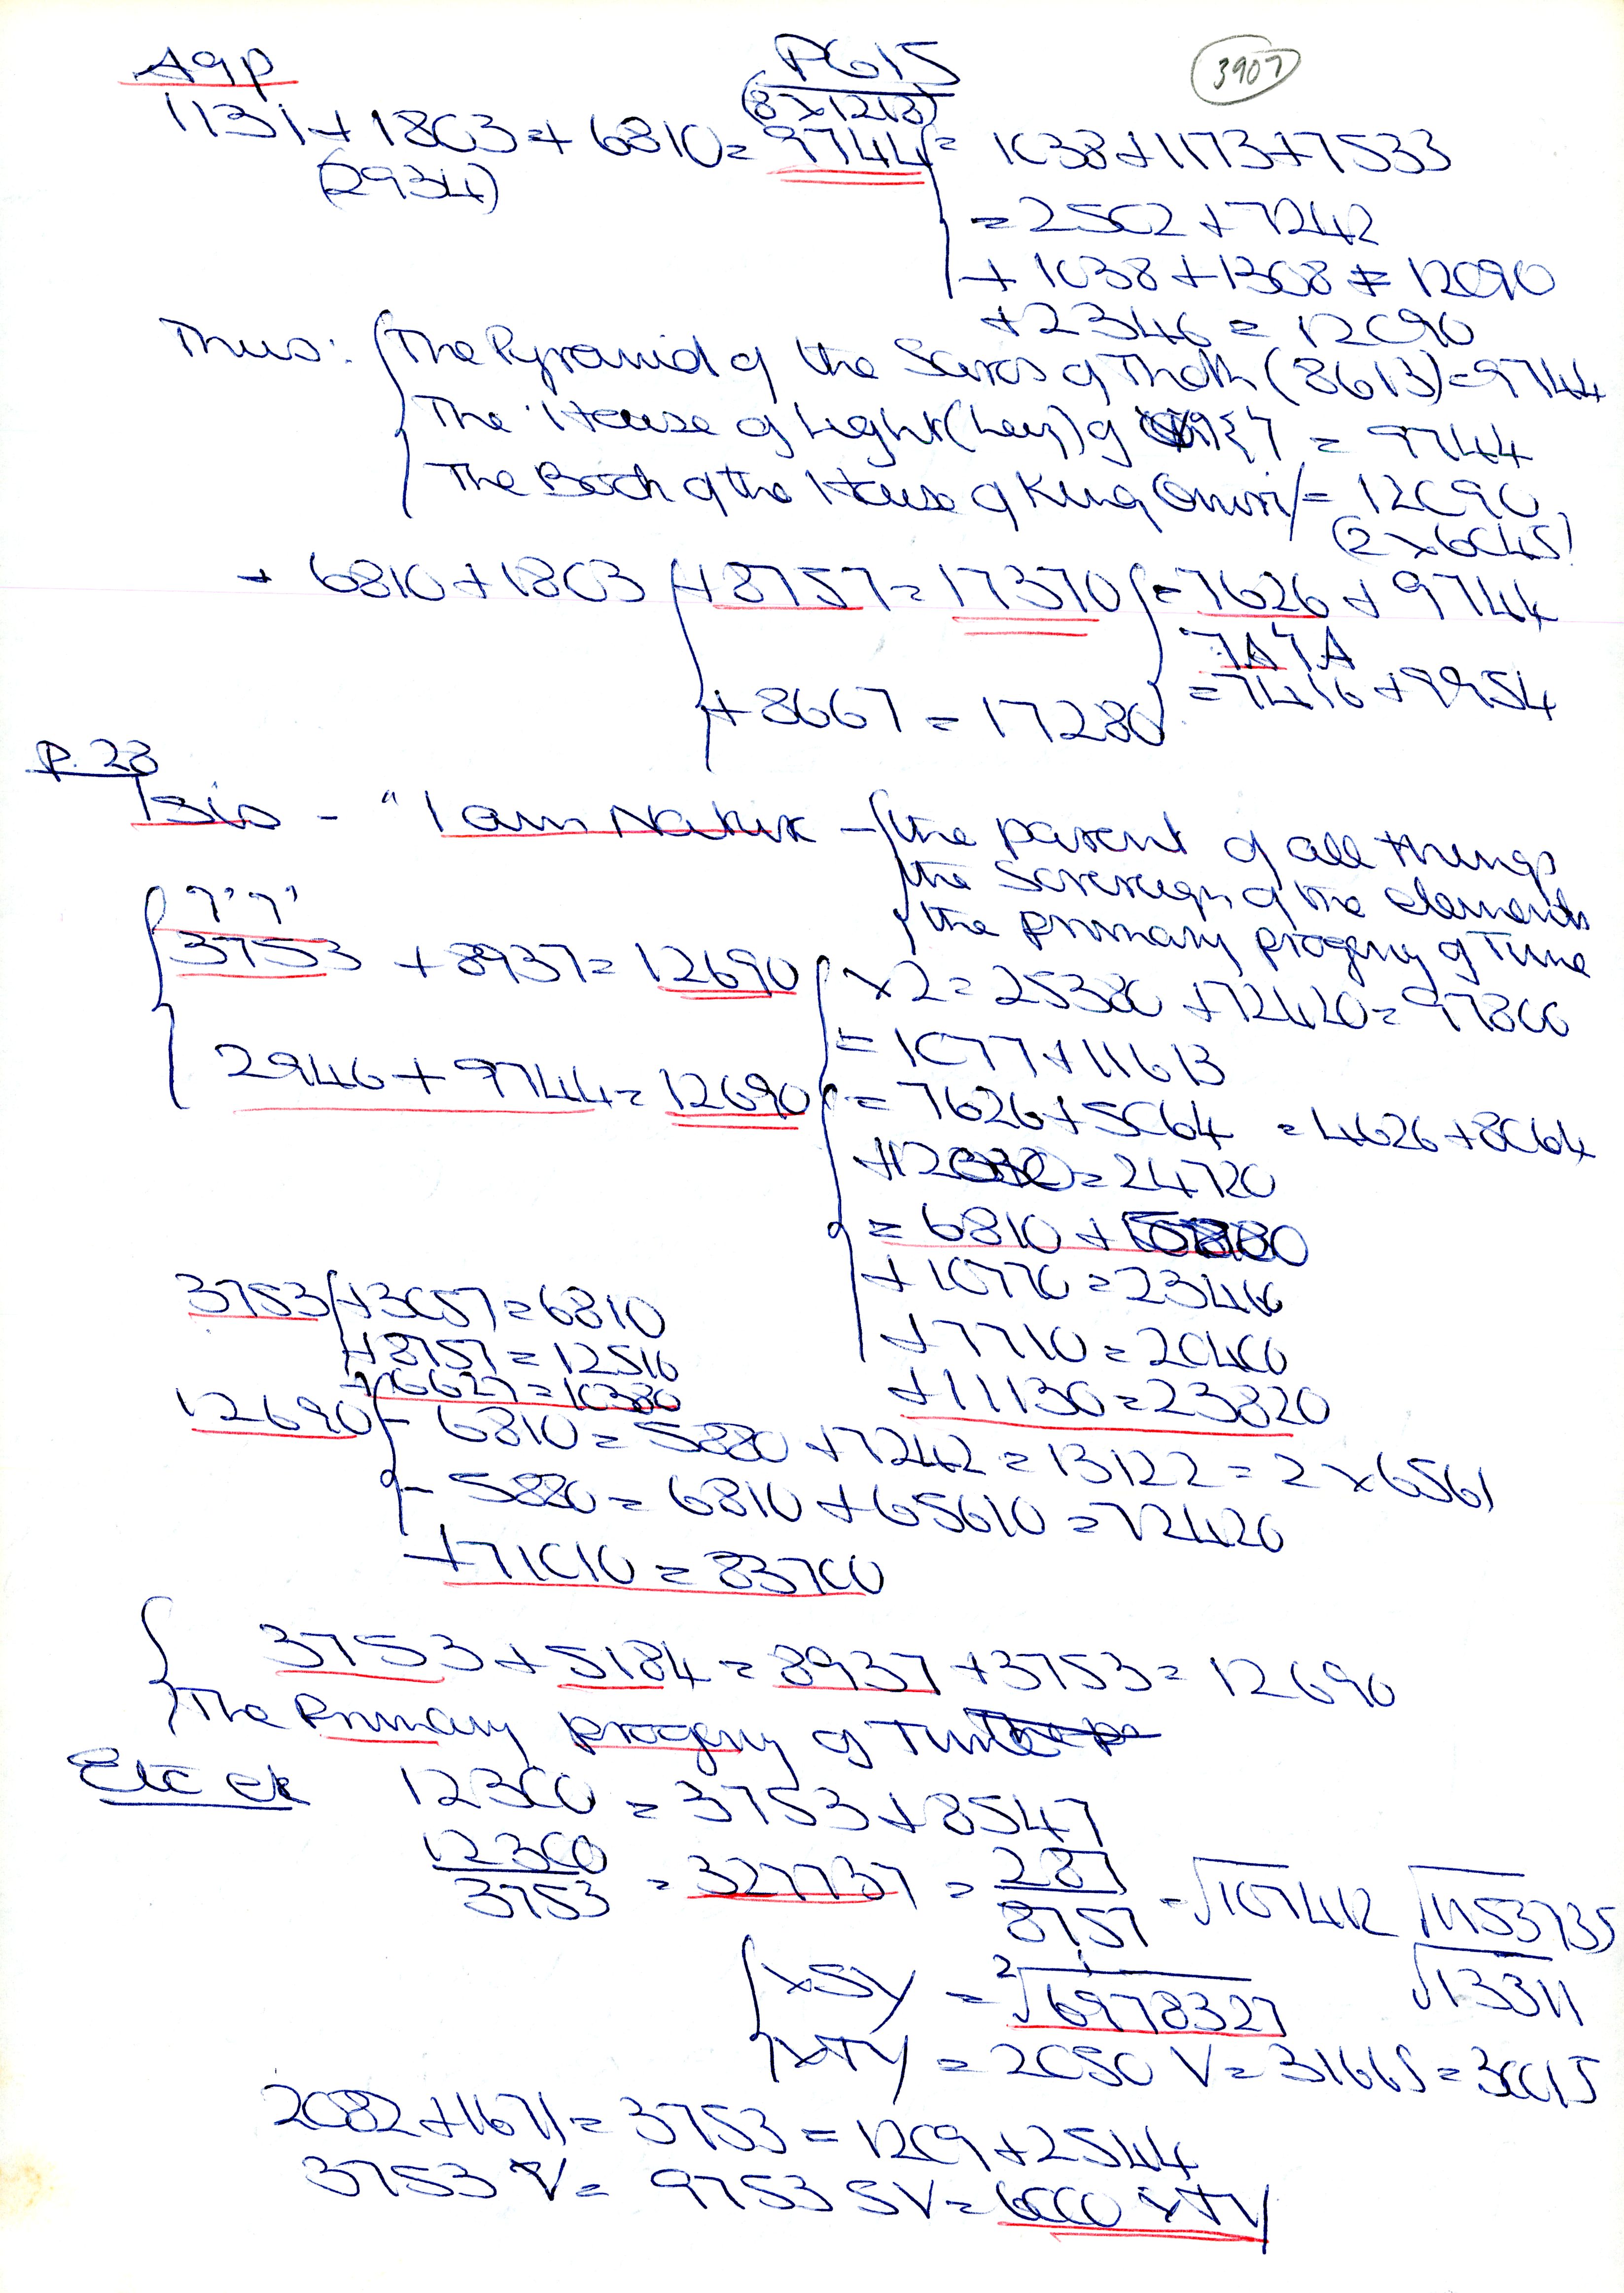 A9p
PG15
3907
(8x1218)
1131 + 1803 + 6810 = 9744 = 1038+1173+7533
(2934)
= 2502 + 7242
+ 1038 + 1308 = 12090
+ 2346 = 12090
Thus: The Pyramid of the Saros of Thoth (8613) = 9744
The House of Light (Ley) of = 9744
The Book of the House of King Omri = 12090
(2x6045)
6810 + 1803 + 8757 = 17370 = 7626 + 9744
= 7416 + 9954
+ 8667 = 17280
P.23
Isis - "I am Nature - the parent of all things
the Sovereign of the elements
the primary progeny of Time
3753 + 8937 = 12690 x2 = 25380 + 72420 = 97800
= 1077 + 11613
2946 + 9744 = 12690 = 7626 + 5064 = 4626 + 8064
= 24720
= 6810 +
+ 10770 = 23460
+ 7710 = 20400
+ 11130 = 23820
3753 + 3057 = 6810
+ 8757 = 12510
+ 6627 = 10380
12690 - 6810 = 5880 + 7242 = 13122 = 2 x 6561
- 5880 = 6810 + 65610 = 72420
+ 71010 = 83700
3753 + 5184 = 8937 + 3753 = 12690
The Primary progeny of Time
Etc etc 12300 = 3753 + 8547
12300/3753 = 327737 = 287/8757 = √107412 √1153735
√13311
xSy = ²√6978327
xTy = 2050 V = 31665 = 30015
2082 + 1671 = 3753 = 1209 + 2544
3753 V = 9753 SV = 6000 xTy